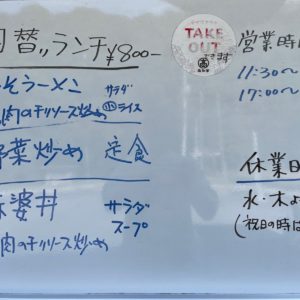 替〃ランチ ¥800-
そラーメン サラダ 小ライス
肉のチリソース炒め
野菜炒め 定食
麻婆丼 サラダ スープ
肉のチリソース炒め
TAKE OUT
できます
営業時
11:30〜
17:00〜
休業日
水・木よ
(祝日の時は